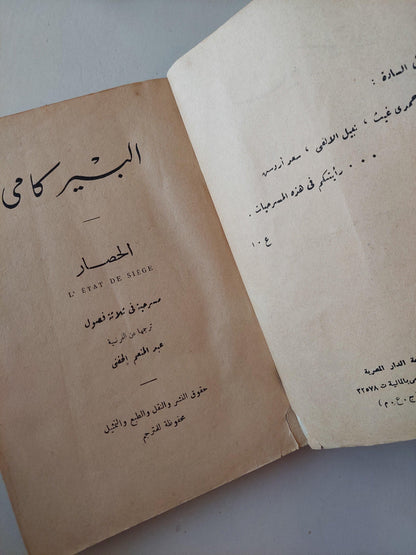 البير كامى
الحصار
L' ÉTAT DE SIÈGE
مسرحية فى ثلاثة فصول
ترجمها عن الفرنسية
عبد المنعم الحفنى
حقوق النشر والنقل والطبع والتمثيل
محفوظة للمترجم
السادة :
حمدى غيث ، نبيل الالفى ، سعد أردش
. . . رأيتكم فى هذه المسرحيات .
ع ١٠
الدار المصرية
بالمالية ت ٣٢٥٧٨
ج . ع . م )